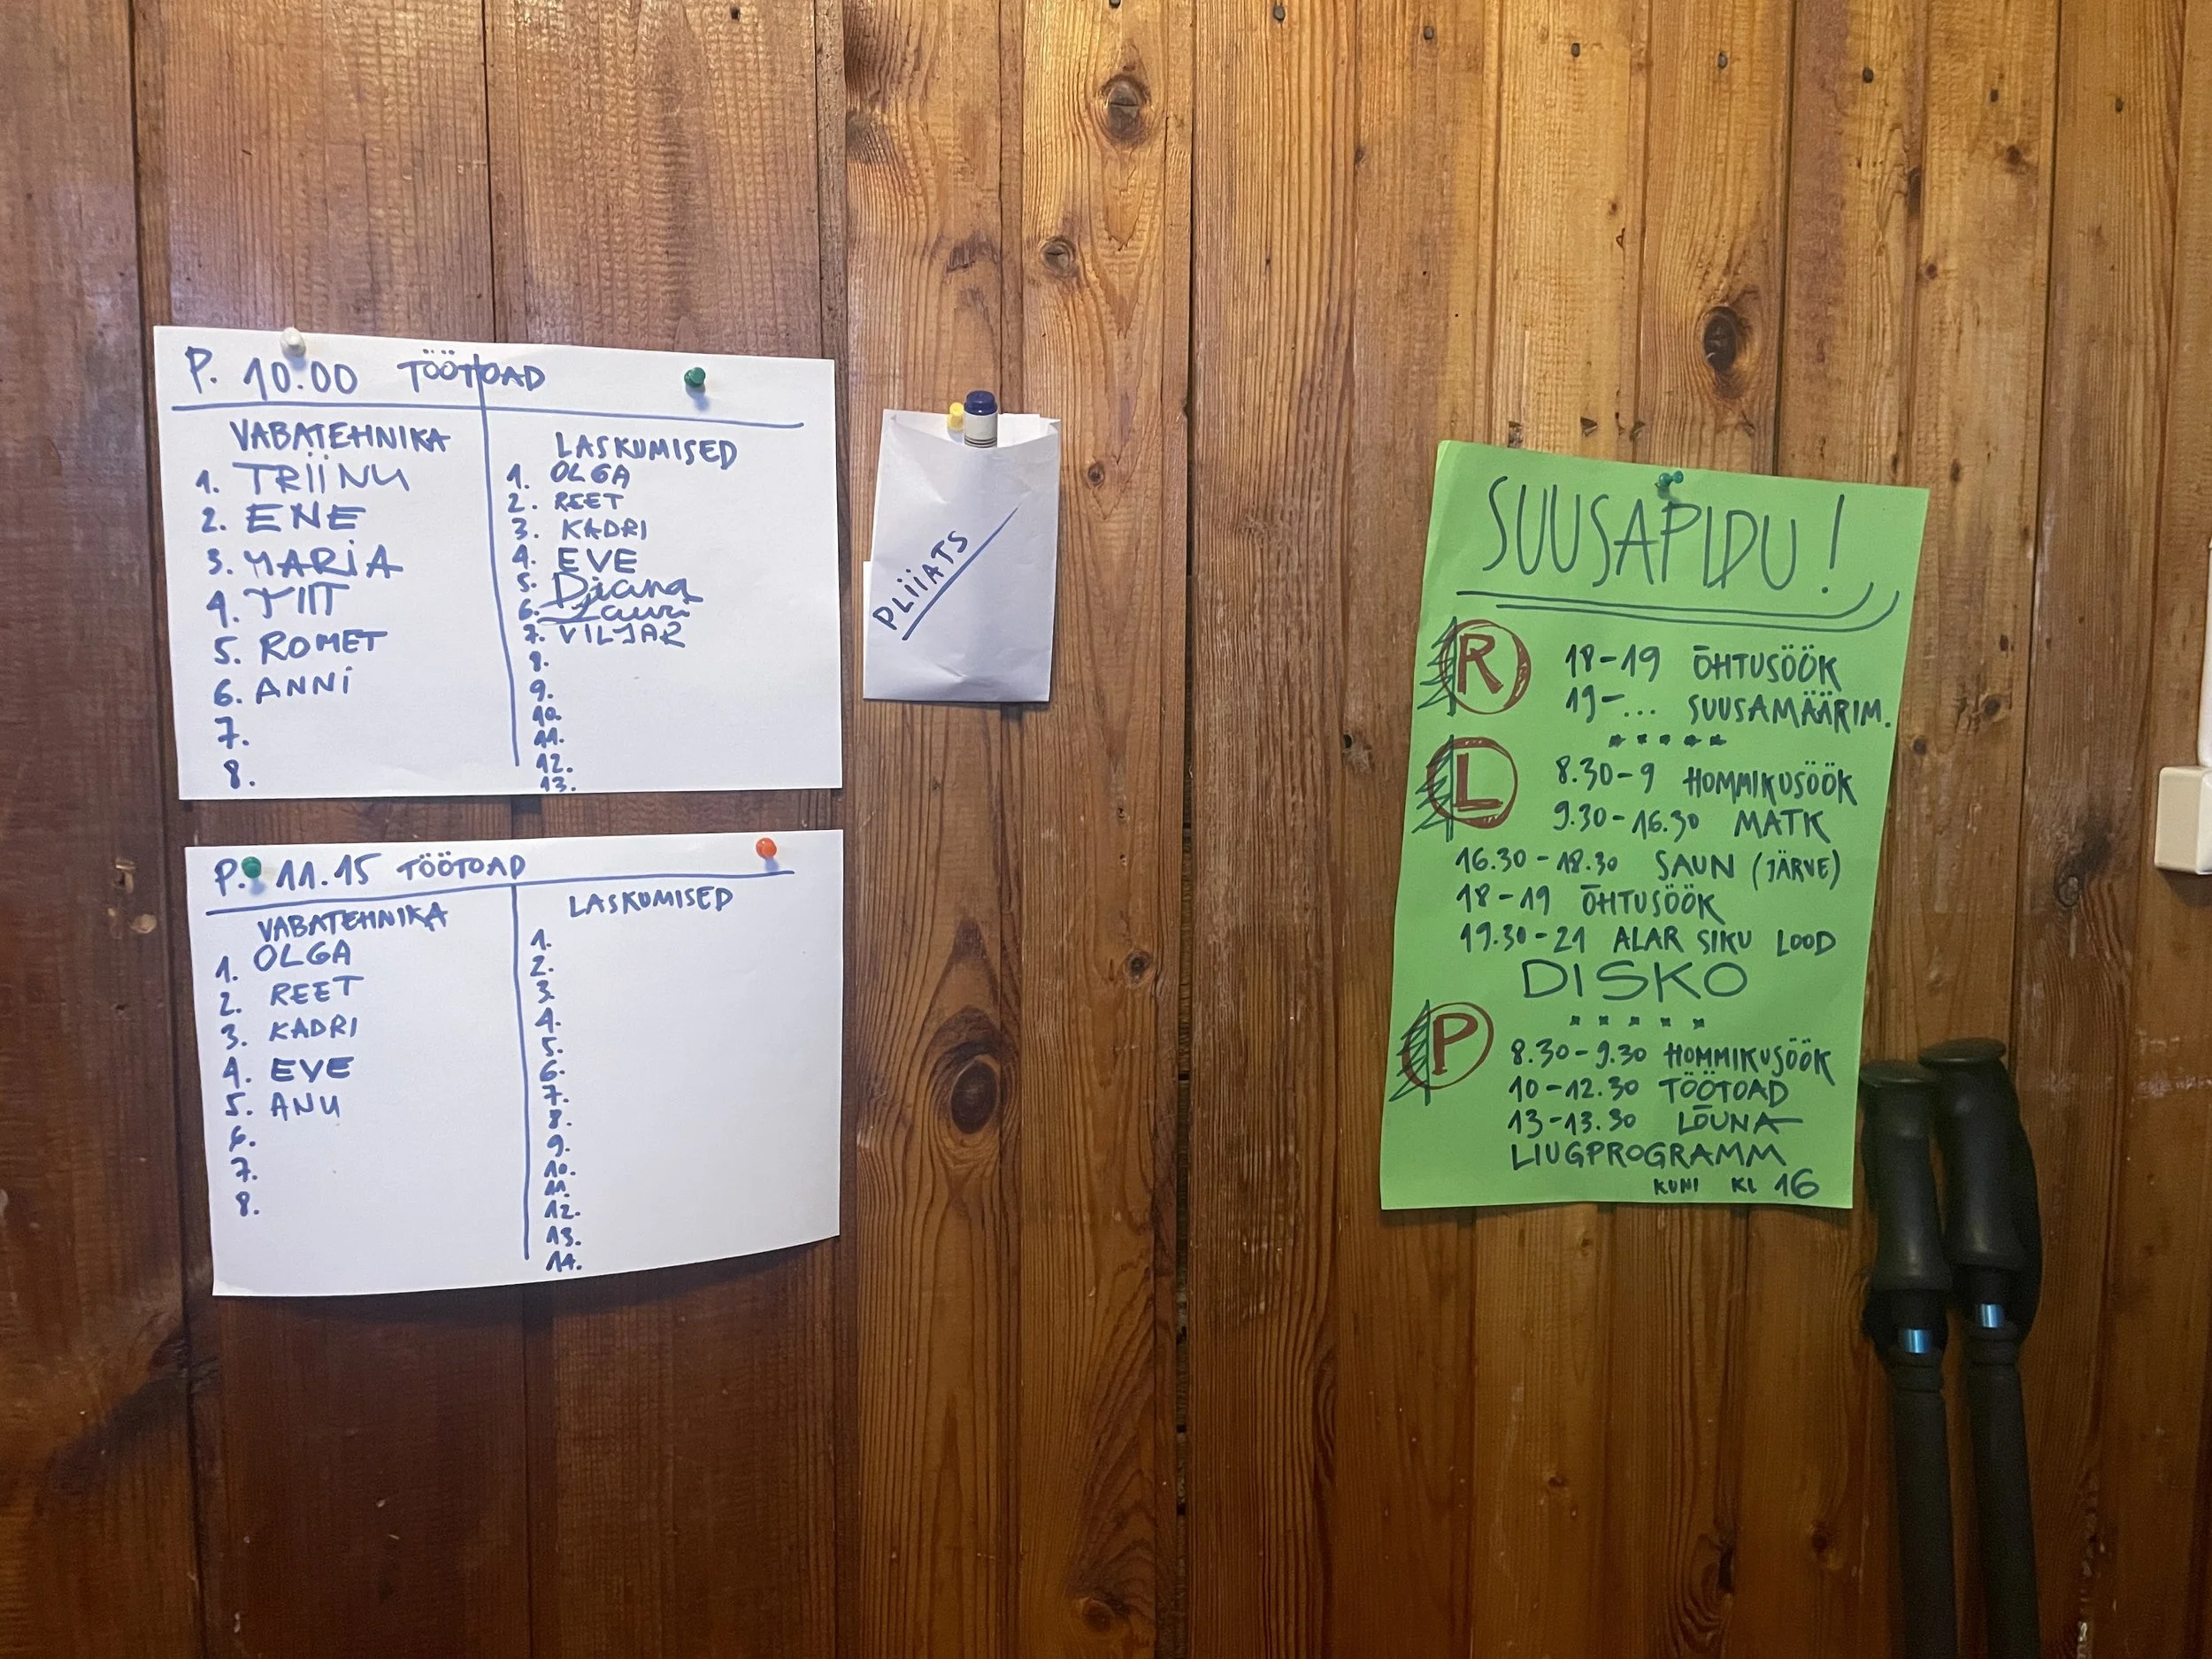 P. 10.00 TÖÖTOAD
VABATEHNIKA
1. TRIINU
2. ENE
3. MARIA
4. TIIT
5. ROMET
6. ANNI
7.
8.
LASKUMISED
1. OLGA
2. REET
3. KADRI
4. EVE
5. Diana
6. Lauri
7. VILJAR
8.
9.
10.
11.
12.
13.
P. 11.15 TÖÖTOAD
VABATEHNIKA
1. OLGA
2. REET
3. KADRI
4. EVE
5. ANU
6.
7.
8.
LASKUMISED
1.
2.
3.
4.
5.
6.
7.
8.
9.
10.
11.
12.
13.
14.
PLIIATS
SUUSAPIDU!
R 18-19 ÕHTUSÖÖK
19-... SUUSAMÄÄRIM.
L 8.30-9 HOMMIKUSÖÖK
9.30-16.30 MATK
16.30-18.30 SAUN (JÄRVE)
18-19 ÕHTUSÖÖK
19.30-21 ALAR SIKU LOOD
DISKO
P 8.30-9.30 HOMMIKUSÖÖK
10-12.30 TÖÖTOAD
13-13.30 LÕUNA
LIUGPROGRAMM
KUNI KL 16